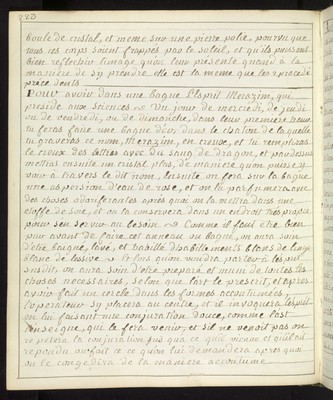 223
boule de cristal, et meme sur une pierre polie, pourvu que
tous ces corps soient frappés par le soleil, et qu'ils puissent
bien reflechir l'image qu'on leur présente quand à la
maniere de s'y prendre elle est la meme que les 2 procedés
précédents
Pour avoir dans une bague l'Esprit Merazim, qui
preside aux Sciences. Un jour de mercredi, de jeudi
ou de vendredi, ou de dimanche, dans leur premiere heure
tu feras faire une bague d'or, dans le chaton de laquelle
tu graveras ce nom, Merazim, en creuse, et tu rempliras
le creux des lettres avec du sang de dragon, et par dessus
mettras ensuite un cristal plat, de maniere qu'on puisse y
voir à travers le dit nom, Ensuite on fera sur la bague
une aspersion d'eau de rose, et on la parfumera avec
des choses odoriferantes après quoi on la mettra dans une
etoffe de soie, et on la conservera dans un endroit très propre
pour s'en servir au besoin. Comme il faut etre bien
pur avant de faire cet anneau ou bague, on aura soin
d'etre baigné, lavé, et habillé d'habillements blancs de linge
blanc de lessive. Et lors qu'on voudra parler à l'esprit
susdit, on aura soin d'etre preparé, et muni de toutes les
choses necessaires, selon que l'art le prescrit, et après
avoir fait un cercle dans les formes accoutumées,
l'operateur s'y placera au centre, et il invoquera l'esprit
en lui faisant une conjuration douce, comme l'art
l'enseigne, qui le fera venir, et s'il ne venoit pas on
repetera la conjuration jusqu'à ce qu'il vienne et qu'il ait
repondu ou fait ce ce qu'on lui demandera après quoi
on le congediera de la maniere accoutumée